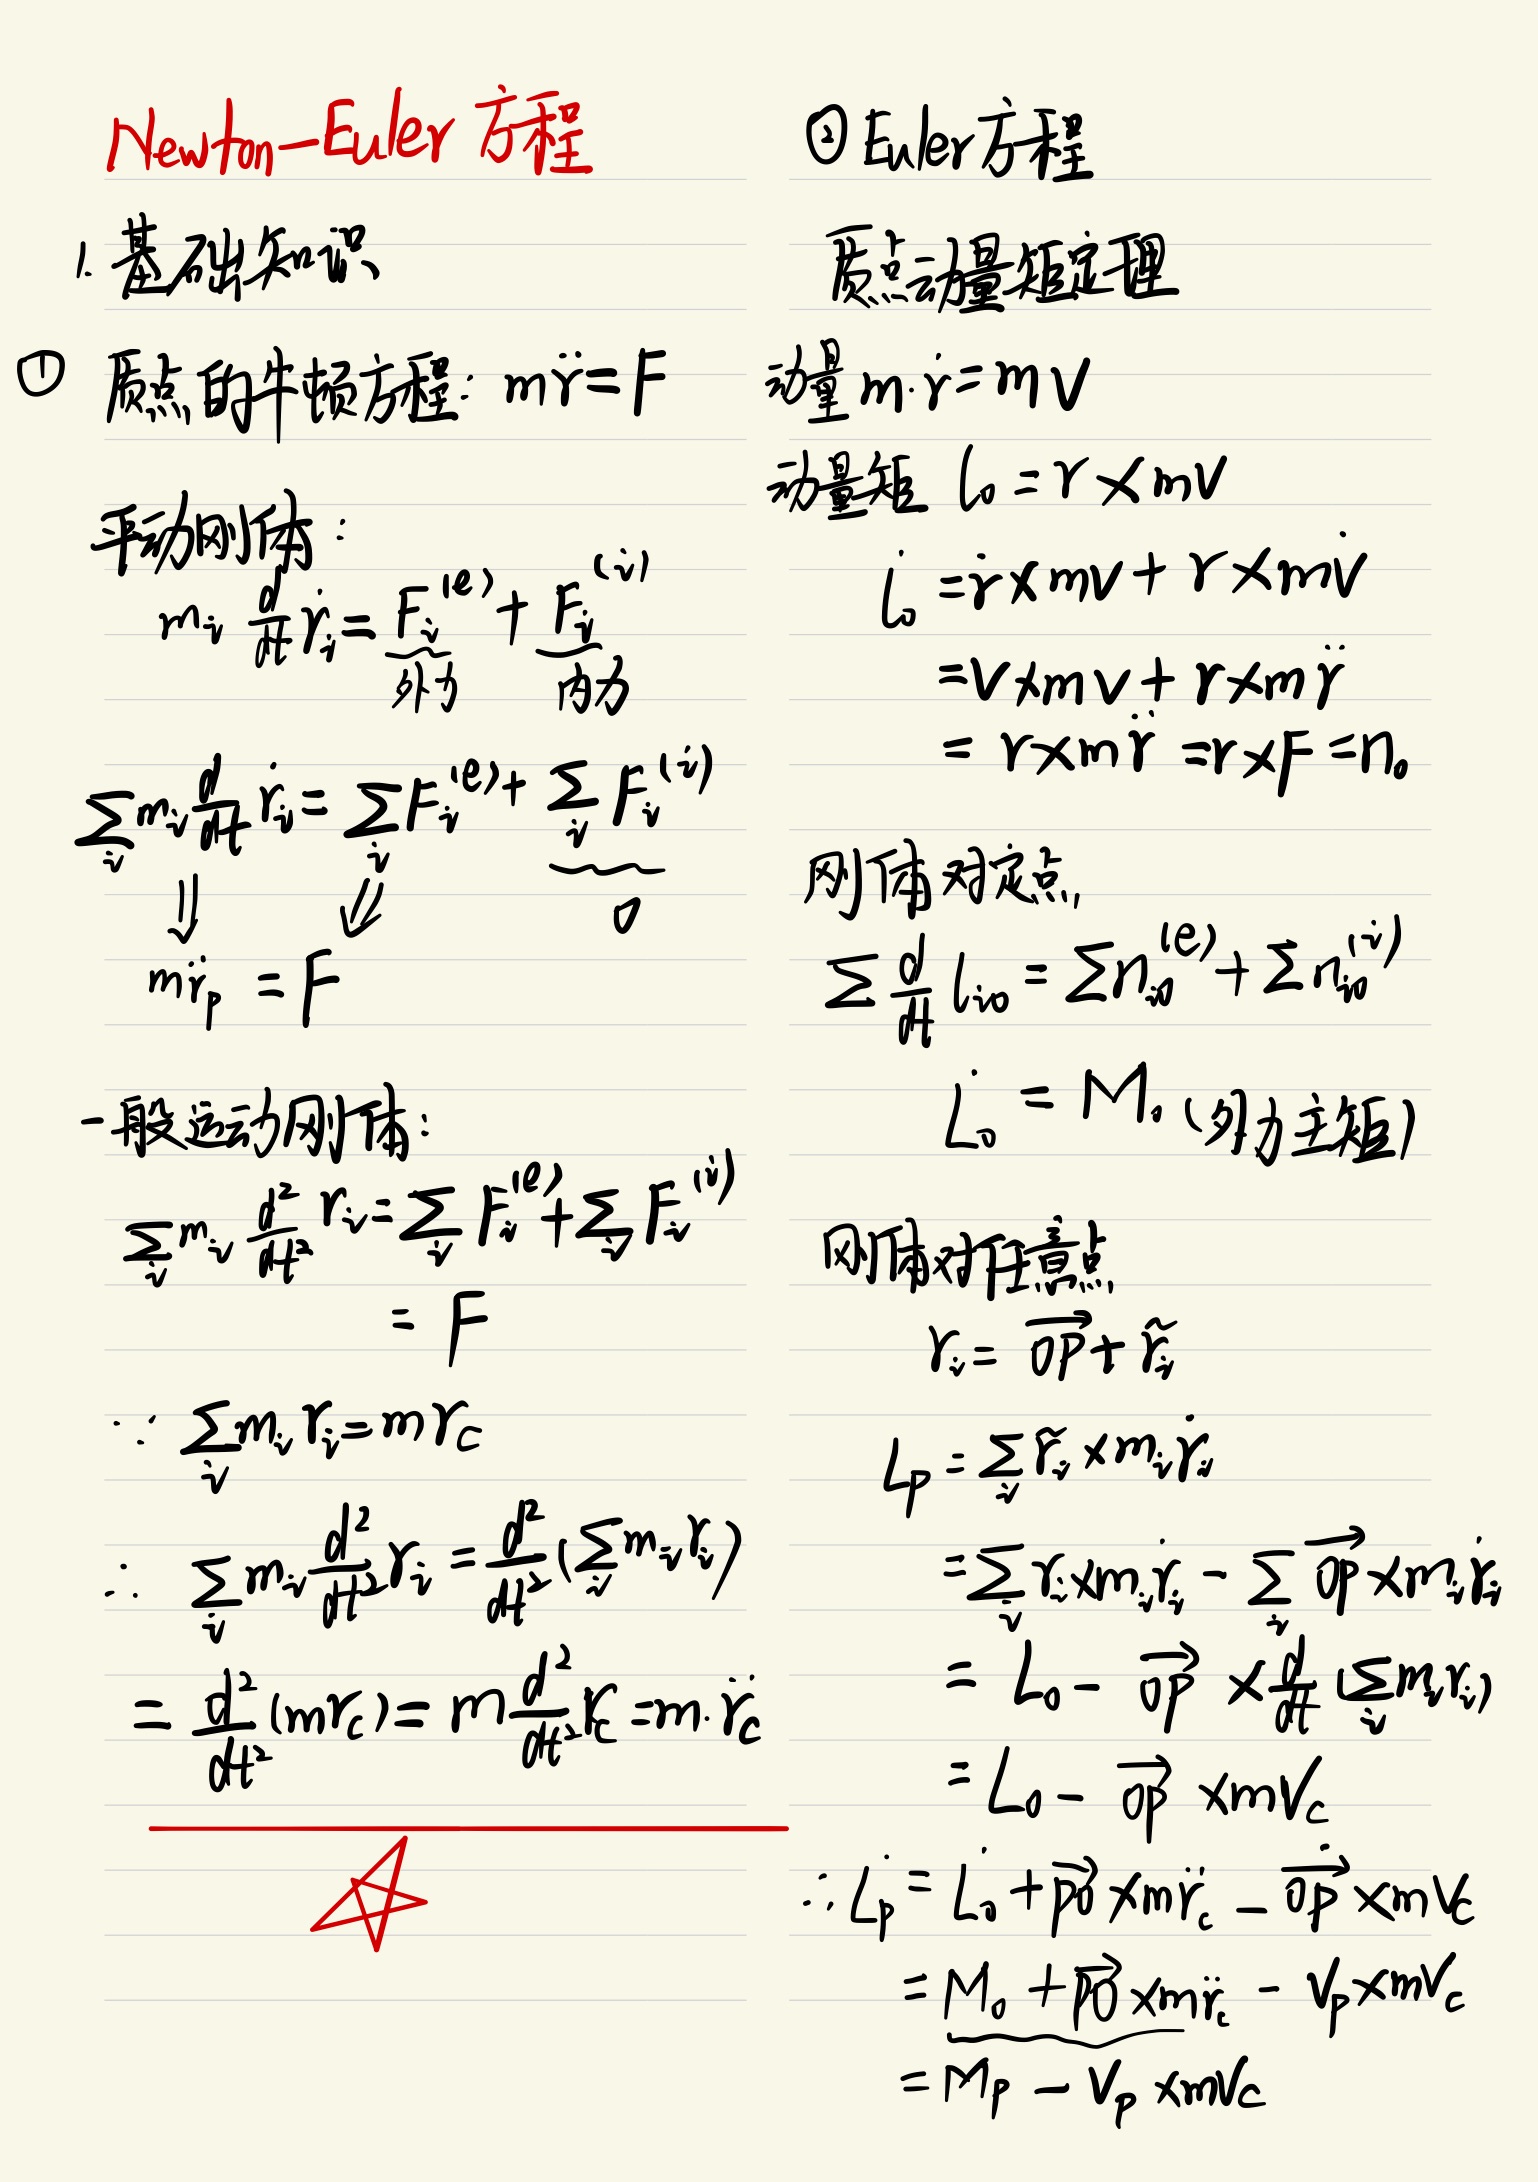 Newton-Euler 方程
1. 基础知识
① 质点的牛顿方程: mr̈=F
平动刚体:
mᵢ d/dt ṙᵢ = Fᵢ⁽ᵉ⁾ + Fᵢ⁽ⁱ⁾
外力 内力
∑ᵢ mᵢ d/dt ṙᵢ = ∑ᵢ Fᵢ⁽ᵉ⁾ + ∑ᵢ Fᵢ⁽ⁱ⁾
⇓ ⇙ 0
mr̈_p = F
一般运动刚体:
∑ᵢ mᵢ d²/dt² rᵢ = ∑ᵢ Fᵢ⁽ᵉ⁾ + ∑ᵢ Fᵢ⁽ⁱ⁾
= F
∵ ∑ᵢ mᵢ rᵢ = m r_c
∴ ∑ᵢ mᵢ d²/dt² rᵢ = d²/dt² (∑ᵢ mᵢ rᵢ)
= d²/dt² (m r_c) = m d²/dt² r_c = m· r̈_c
② Euler方程
质点动量矩定理
动量 m·ṙ = mv
动量矩 l₀ = r × mv
l̇₀ = ṙ × mv + r × mv̇
= v × mv + r × mr̈
= r × mr̈ = r × F = n₀
刚体对定点
∑ d/dt lᵢ₀ = ∑nᵢ₀⁽ᵉ⁾ + ∑nᵢ₀⁽ⁱ⁾
L̇₀ = M₀ (外力主矩)
刚体对任意点
rᵢ = \overrightarrow{OP} + r̃ᵢ
L_p = ∑ᵢ r̃ᵢ × mᵢ ṙᵢ
= ∑ᵢ rᵢ × mᵢ ṙᵢ - ∑ᵢ \overrightarrow{OP} × mᵢ ṙᵢ
= L₀ - \overrightarrow{OP} × d/dt (∑ᵢ mᵢ rᵢ)
= L₀ - \overrightarrow{OP} × mV_c
∴ L̇_p = L̇₀ + \overrightarrow{PO} × mr̈_c - \dot{\overrightarrow{OP}} × mV_c
= M₀ + \overrightarrow{PO} × mr̈_c - V_p × mV_c
= M_p - V_p × mV_c